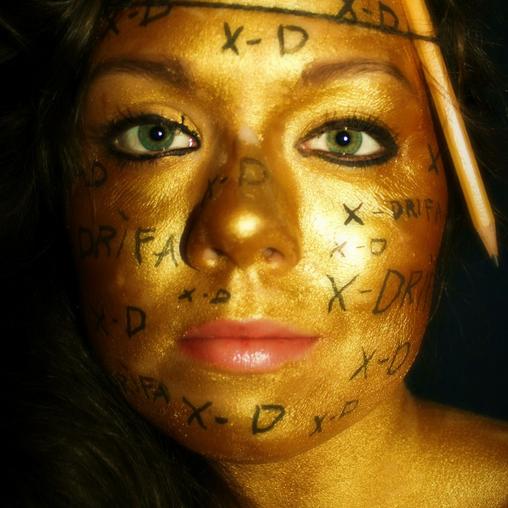 X-D
X-D
X-D
X-D
X-DRIFA
DRÌFA
X-D
X-D
X-DRI
X-D
X-D
RIFA
X-D
X-D